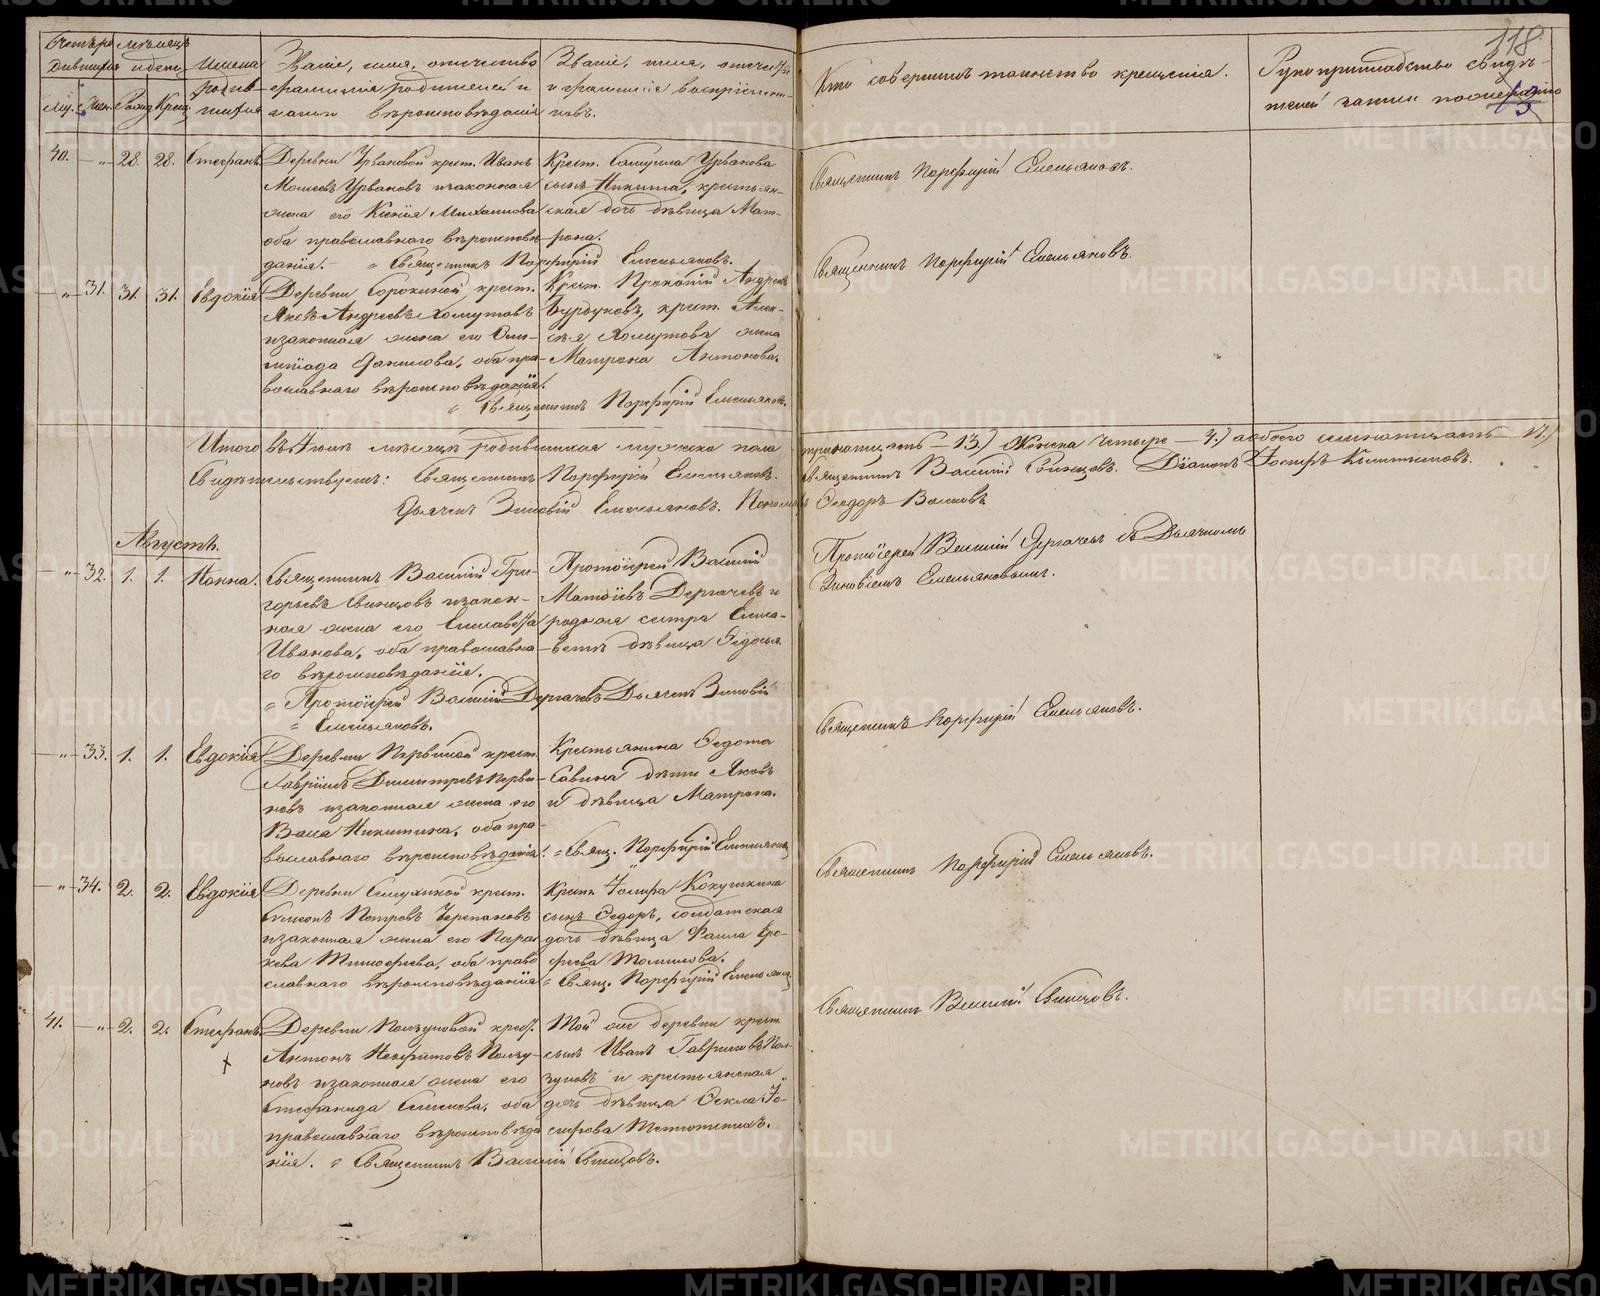 118
13
Счетъ ро-
дившихся
муж. жен.
Мѣсяцъ
и день
Рожд. Крещ.
Имена
родив-
шихся
Званіе, имя, отчество
фамилія родителей и
какого вѣроисповѣданія
Званіе, имя, отчество
и фамилія воспріемни-
ковъ.
Кто совершилъ таинство крещенія.
Рукоприкладство свидѣ-
телей записи по желанію
40. — „ — 28. 28. Стефанъ
Деревни Урвановой крест. Иванъ
Моисеевъ Урвановъ и законная
жена его Ксенія Михаилова
оба православнаго вѣроисповѣ-
данія. — „ Священникъ Порфирій Емельяновъ.
Крест. Самуила Урванова
сынъ Никита, крестьян-
ская дочь дѣвица Мат-
рона.
Священникъ Порфирій Емельяновъ.
— „ — 31. 31. 31. Евдокія
Деревни Сорокиной крест.
Яковъ Андреевъ Хомутовъ
и законная жена его Олим-
піада Данилова, оба пра-
вославнаго вѣроисповѣданія.
„ Священникъ Порфирій Емельяновъ.
Крест. Прокопій Андреевъ
Бурдуковъ, крест. Алек-
сѣя Хомутова жена
Матрона Антонова.
Священникъ Порфирій Емельяновъ.
Итого въ Іюлѣ мѣсяцѣ родившихся мужска пола тринатцать — 13) Женска четыре — 4.) а обоего семнатцать — 17.)
Свидѣтельствуетъ: Священникъ Порфирій Емельяновъ. Священникъ Василій Свинцовъ. Діаконъ Іосифъ
Дьячекъ Зиновій Емельяновъ. Пономарь Ѳеодоръ
Августъ.
— „ — 32. 1. 1. Нонна.
Священникъ Василій Гри-
горьевъ Свинцовъ и закон-
ная жена его Елисавета
Иванова, оба православна-
го вѣроисповѣданія.
„ Протоіерей Василій Дергачевъ Дьячекъ Зиновій
„ Емельяновъ.
Протоіерей Василій
Матѳіевъ Дергачевъ и
родная сестра Елиса-
веты дѣвица Ѳедосья
Протоіерей Василій Дергачевъ съ Дьячкомъ
Зиновіемъ Емельяновымъ.
— „ — 33. 1. 1. Евдокія
Деревни Первиной крест.
Гавріилъ Димитріевъ Перви-
новъ и законная жена его
Васса Никитина, оба пра-
вославнаго вѣроисповѣданія. „ Свящ. Порфирій Емельяновъ
Крестьянина Ѳедота
Савина дѣти Яковъ
и дѣвица Матрона.
Священникъ Порфирій Емельяновъ.
— „ — 34. 2. 2. Евдокія
Деревни Семухиной крест.
Симеонъ Петровъ Черепановъ
и законная жена его Парас-
кева Тимофеева, оба право
славнаго вѣроисповѣданія „ Свящ. Порфирій Емельяновъ
Крест. Іосифа Кокушкина
сынъ Ѳедоръ, солдатская
дочь дѣвица Фаина Еро-
феева Томилова.
Священникъ Порфирій Емельяновъ.
41. — „ — 2. 2. Стефанъ.
Деревни Ползуновой крест.
Антонъ Неофитовъ Ползу-
новъ и законная жена его
Стефанида Семенова, оба
православнаго вѣроисповѣда
нія. „ Священникъ Василій Свинцовъ.
Той же деревни крест.
сынъ Иванъ Гавриловъ Пол-
зуновъ и крестьянская
дочь дѣвица Ѳекла Іо-
сифова
Священникъ Василій Свинцовъ.
METRIKI.GASO-URAL.RU